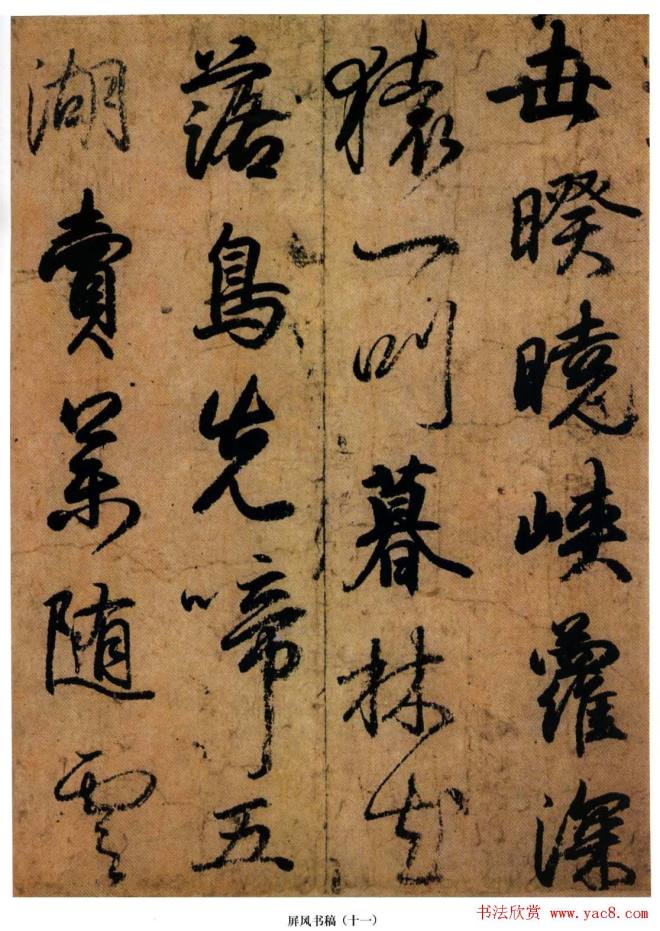 世暌曉峡蘿深
猿一叫暮林花
落鳥先啼五
湖賣藥随雲
屏风书稿（十一）
书法欣赏 www.yac8.com